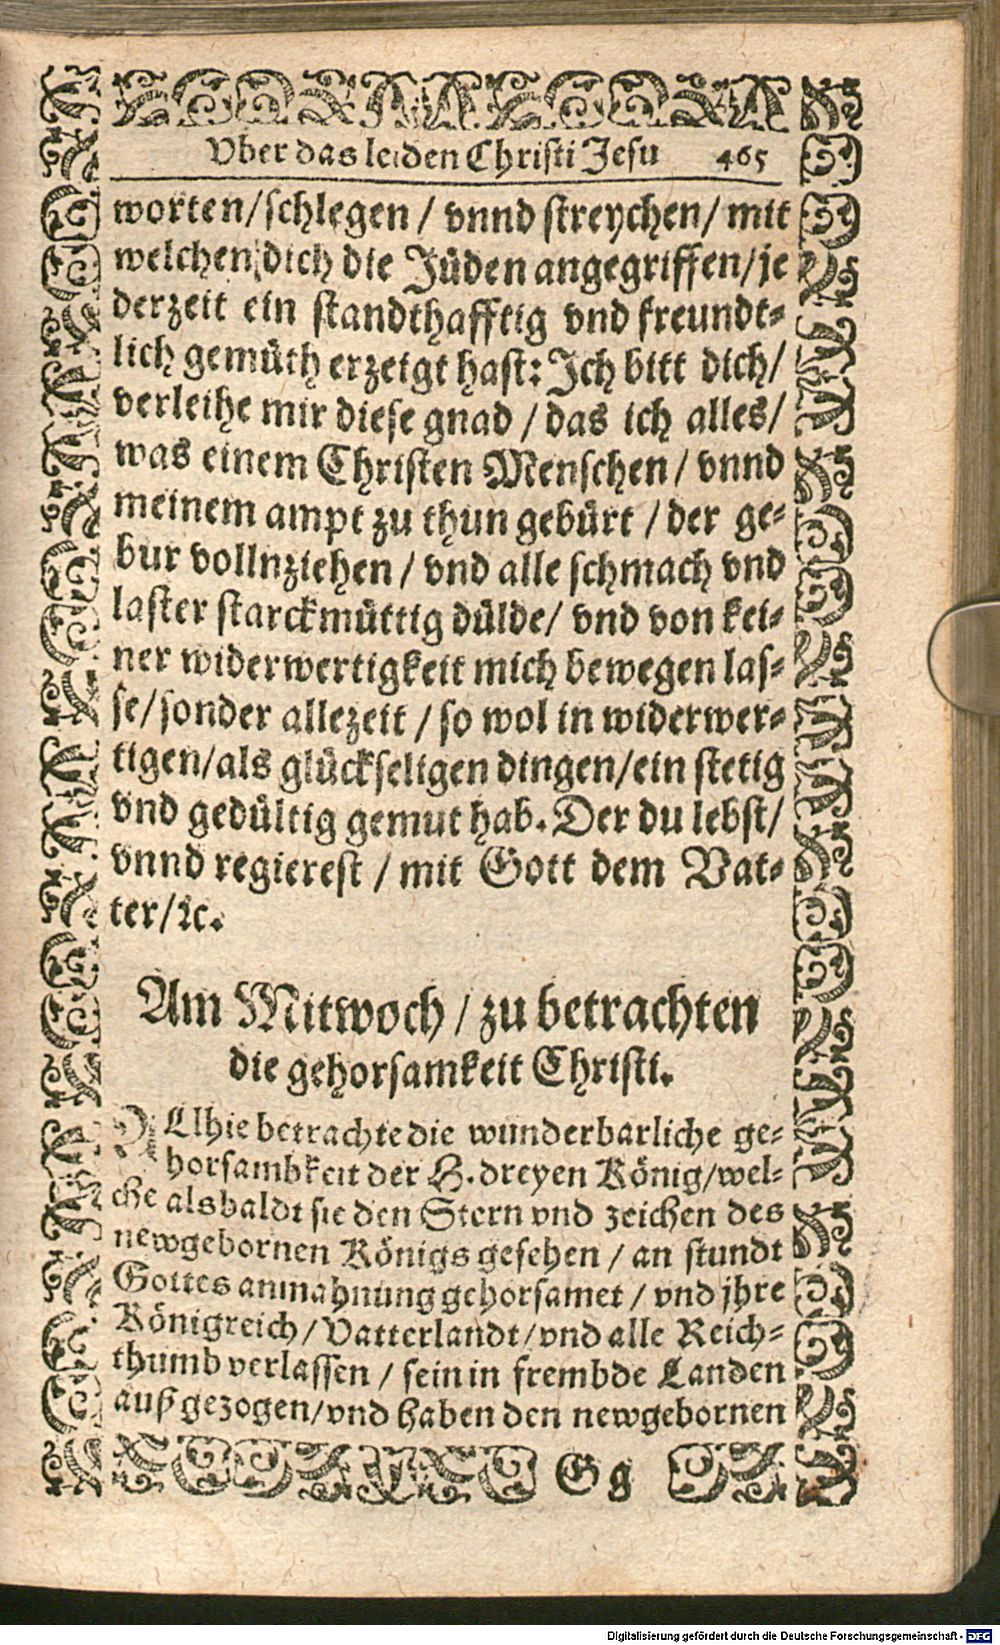 Vber das leiden Christi Jesu 465
worten/schlegen / vnnd streychen/ mit
welchen dich die Jüden angegriffen/je
derzeit ein standthafftig vnd freundt-
lich gemüth erzeigt hast: Ich bitt dich/
verleihe mir diese gnad / das ich alles/
was einem Christen Menschen / vnnd
meinem ampt zu thun gebürt / der ge-
bur vollnziehen / vnd alle schmach vnd
laster starckmüttig dülde/ vnd von kei-
ner widerwertigkeit mich bewegen las-
se/sonder allezeit / so wol in widerwer-
tigen/als glückseligen dingen/ein stetig
vnd gedültig gemut hab. Der du lebst/
vnnd regierest / mit Gott dem Vat-
ter/ꝛc.
Am Mitwoch / zu betrachten
die gehorsamkeit Christi.
ALlhie betrachte die wunderbarliche ge-
horsambkeit der H. dreyen König/wel-
che alsbaldt sie den Stern vnd zeichen des
newgebornen Königs gesehen / an stundt
Gottes anmahnung gehorsamet / vnd jhre
Königreich/Vatterlandt/vnd alle Reich-
thumb verlassen / sein in frembde Landen
auß gezogen/vnd haben den newgebornen
Gg
Digitalisierung gefördert durch die Deutsche Forschungsgemeinschaft - DFG